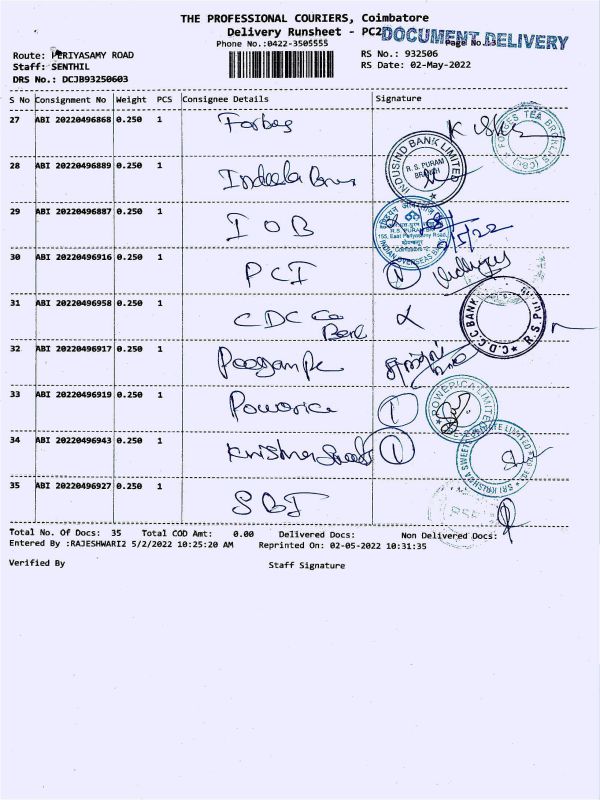 THE PROFESSIONAL COURIERS, Coimbatore
Delivery Runsheet - PC2
DOCUMENT DELIVERY
Phone No.:0422-3505555
Page No.:3
Route: PERIYASAMY ROAD
RS No.: 932506
Staff: SENTHIL
RS Date: 02-May-2022
DRS No.: DCJB93250603
S No Consignment No Weight PCS Consignee Details Signature
27 ABI 20220496868 0.250 1 Forbes
FORBES TEA BROKERS
28 ABI 20220496889 0.250 1
INDUSIND BANK LIMITED
R. S. PURAM
BRANCH
29 ABI 20220496887 0.250 1 IOB
R.S. PURAM
155, East Periyasamy Road,
INDIAN OVERSEAS BANK
2/5/22
30 ABI 20220496916 0.250 1 PCI
31 ABI 20220496958 0.250 1 CDC Co
Bank
C.D.C.C BANK
R.S.P
32 ABI 20220496917 0.250 1
33 ABI 20220496919 0.250 1 Powerica
POWERICA LIMITED
34 ABI 20220496943 0.250 1 Krishna Sweets
SRI KRISHNA SWEETS PRIVATE LIMITED
35 ABI 20220496927 0.250 1 SBI
Total No. Of Docs: 35 Total COD Amt: 0.00 Delivered Docs: Non Delivered Docs:
Entered By :RAJESHWARI2 5/2/2022 10:25:20 AM Reprinted On: 02-05-2022 10:31:35
Verified By Staff Signature